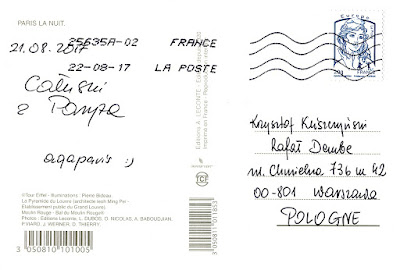 PARIS LA NUIT.
21.08.2017
25635A-02 FRANCE
22-08-17 LA POSTE
Całuski
z Paryża
agaparis :)
Editions A. LECONTE
Imprimé en France
Europe
20g
FRANCE
Krzysztof
Rafał Dembe
ul. Chmielna 73b m 42
00-801 Warszawa
POLOGNE
©Tour Eiffel - Illuminations - Pierre Bideau
La Pyramide du Louvre (architecte Ieoh Ming Pei -
Etablissement public du Grand Louvre)
Moulin Rouge - Bal du Moulin Rouge®
Photos : Editions Leconte, L. DUBOIS, O. NICOLAS, A. BABOUDJIAN,
P. VIARD, J. WERNER, D. THIERRY.
3 050810 101005
3 050811 011833